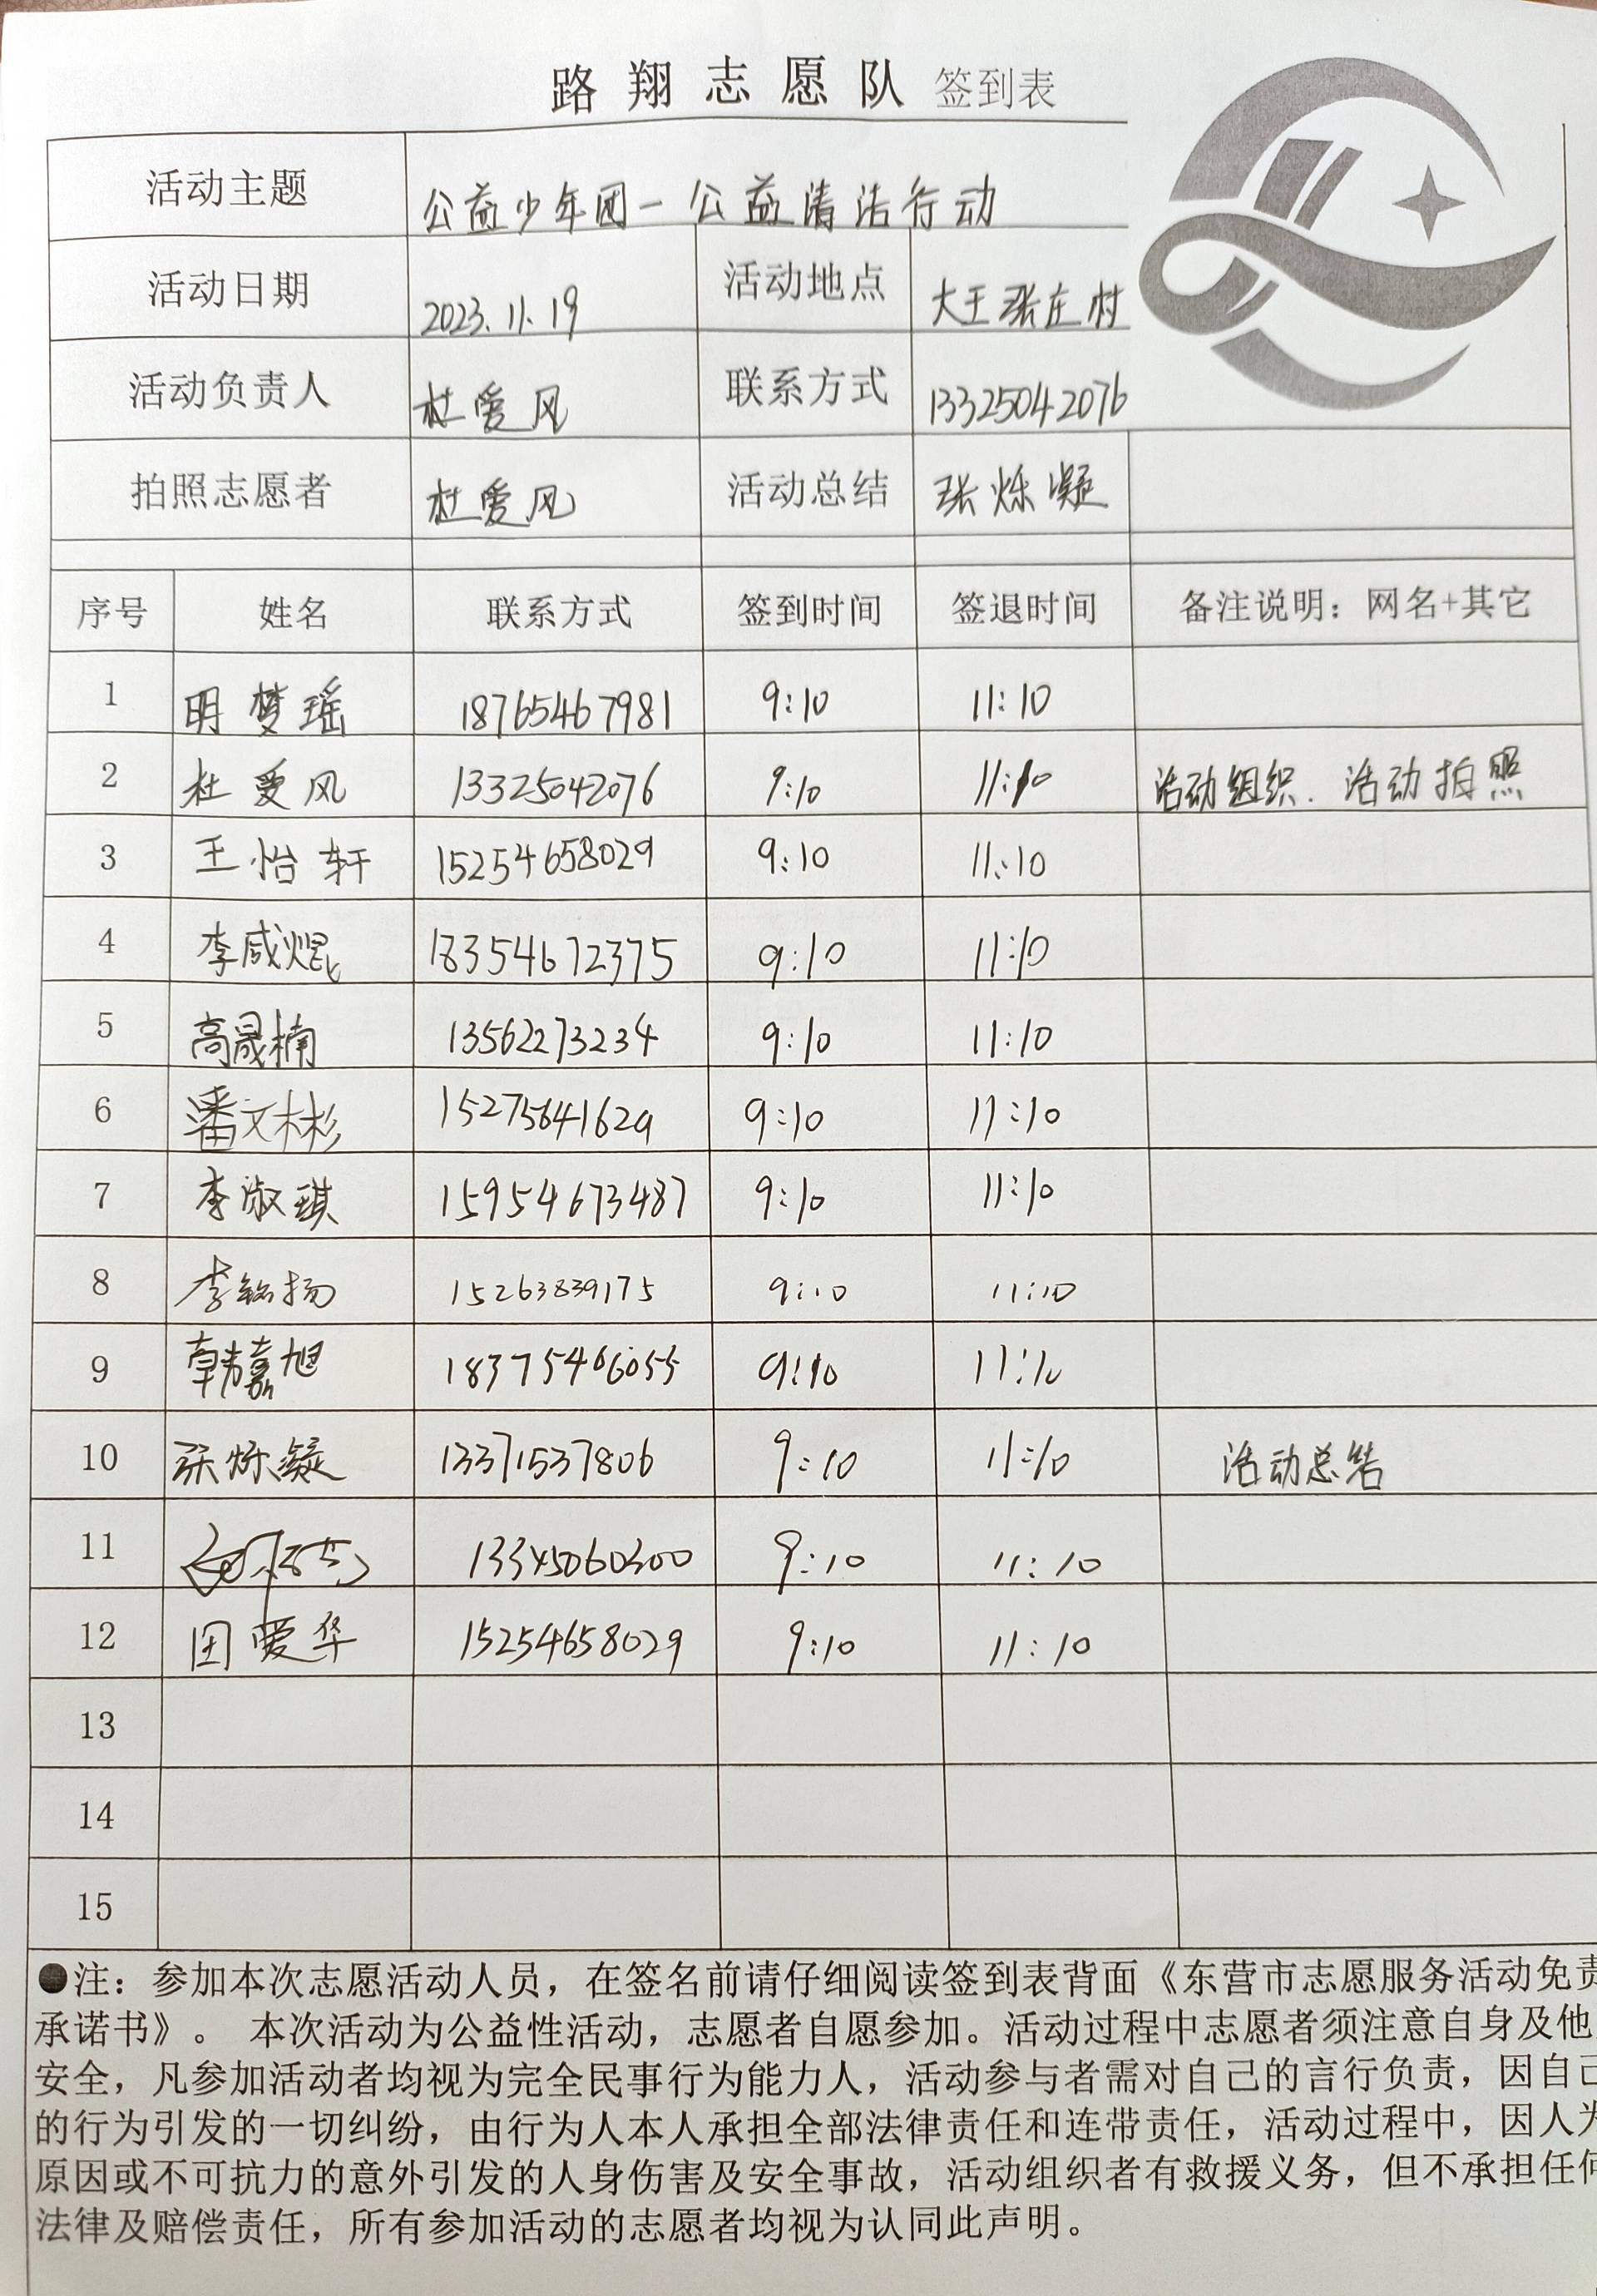 路翔志愿队 签到表
活动主题 公益少年团-公益清洁行动
活动日期 2023.11.19 活动地点 大王张庄村
活动负责人 杜爱风 联系方式 13325042076
拍照志愿者 杜爱风 活动总结 张烁凝
序号 姓名 联系方式 签到时间 签退时间 备注说明：网名+其它
1 明梦瑶 18765467981 9:10 11:10
2 杜爱风 13325042076 9:10 11:10 活动组织. 活动拍照
3 王怡轩 15254658029 9:10 11:10
4 李咸焜 18354672375 9:10 11:10
5 高晟楠 13562273234 9:10 11:10
6 潘文彬 15275641629 9:10 11:10
7 李淑琪 15954673487 9:10 11:10
8 李铭扬 15263839175 9:10 11:10
9 韩嘉旭 18375466055 9:10 11:10
10 张烁凝 13371537806 9:10 11:10 活动总结
11 9:10 11:10
12 田爱华 15254658029 9:10 11:10
13
14
15
●注：参加本次志愿活动人员，在签名前请仔细阅读签到表背面《东营市志愿服务活动免责
承诺书》。 本次活动为公益性活动，志愿者自愿参加。活动过程中志愿者须注意自身及他
安全，凡参加活动者均视为完全民事行为能力人，活动参与者需对自己的言行负责，因自己
的行为引发的一切纠纷，由行为人本人承担全部法律责任和连带责任，活动过程中，因人为
原因或不可抗力的意外引发的人身伤害及安全事故，活动组织者有救援义务，但不承担任何
法律及赔偿责任，所有参加活动的志愿者均视为认同此声明。